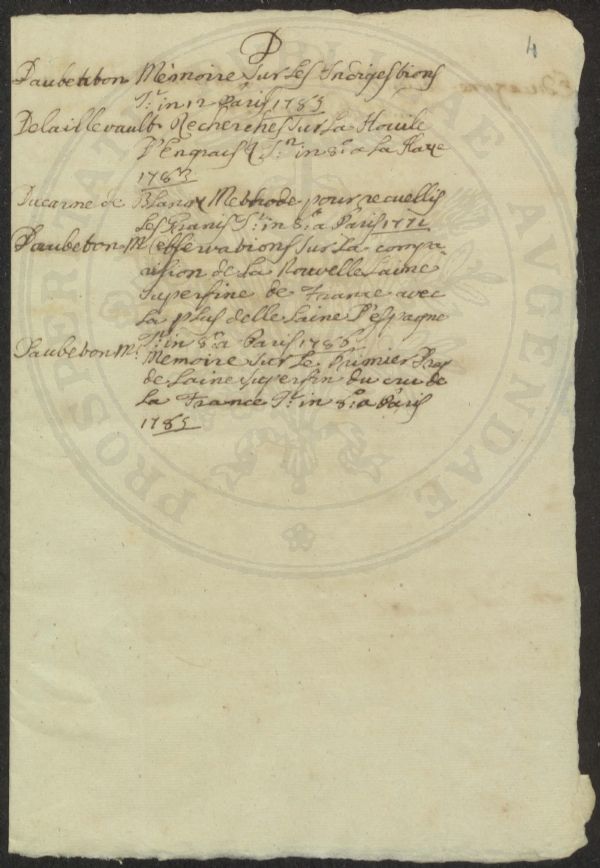 4
D
Daubenton Mémoire Sur Les Indigestions
T. in 12 Paris 1785
Delaillevault Recherches Sur La Houile
D'Engrais T. in 8.º a La Haye
178
Ducarne de Blangy Methode pour recuellir
Les Grains T. in 8.º a Paris 1771
Daubeton M. observations Sur La compa-
raison de La Nouvelle Laine
Superfine de France avec
La plus belle Laine D'espagne
T. in 8.º a Paris 1786
Daubeton M. Memoire Sur Le Primier Drap
de Laine Superfin du cru de
La France T. in 8.º a Paris
1785